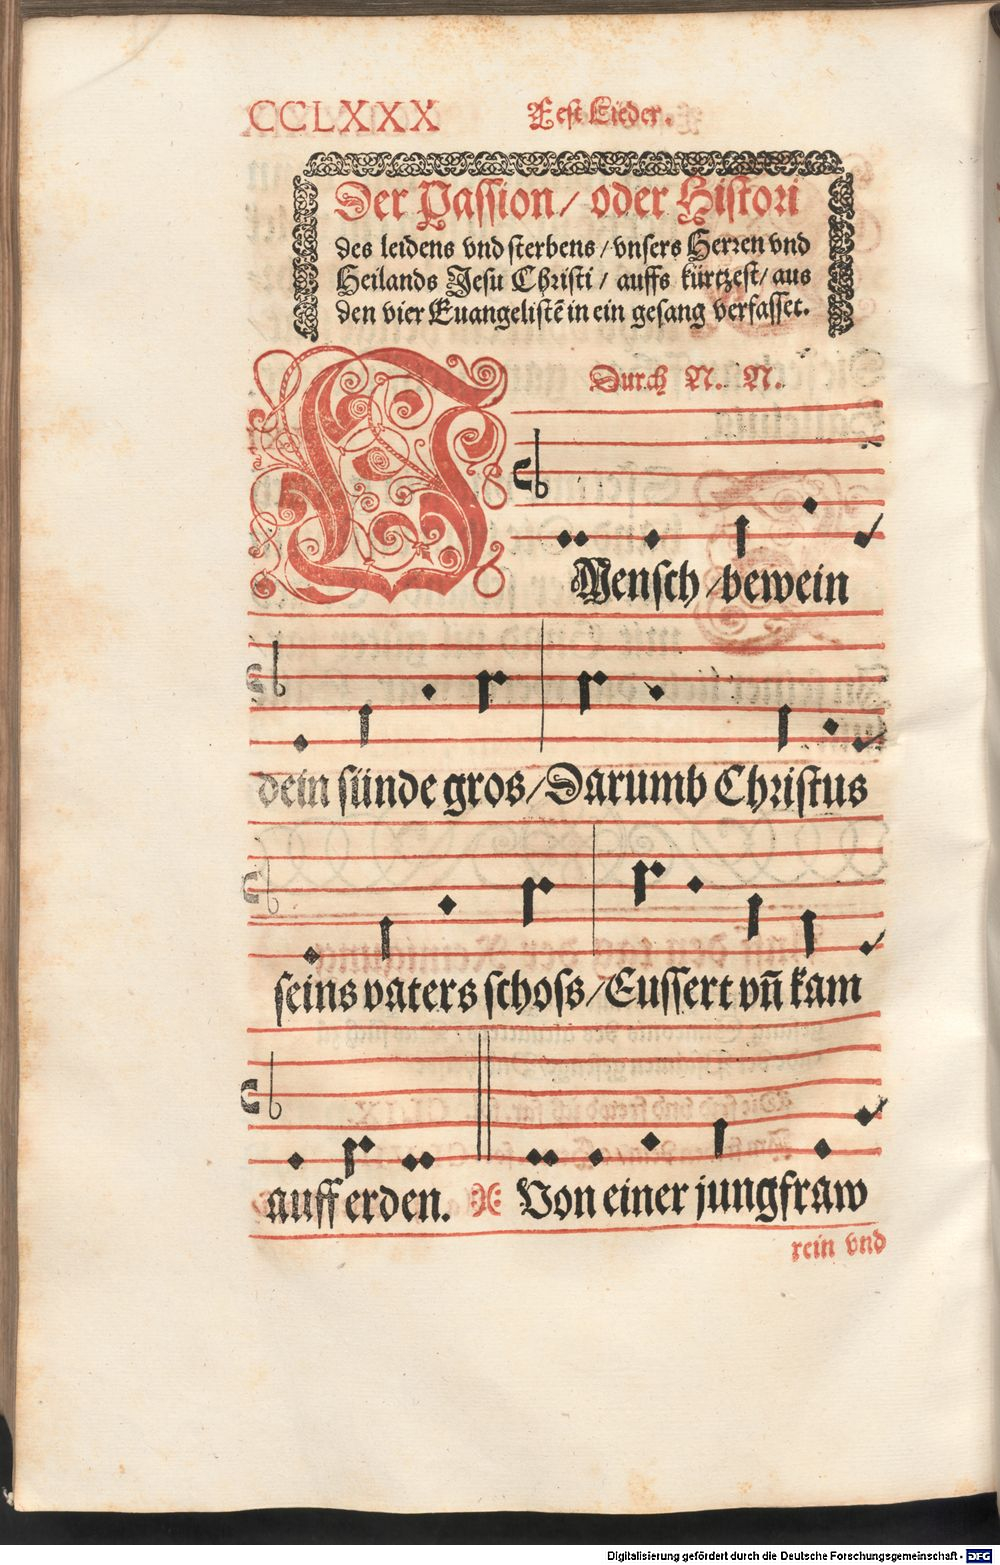 CCLXXX Fest Lieder.
Der Passion / oder Histori
des leidens vnd sterbens / vnsers Herren vnd
Heilands Jesu Christi / auffs kürtzest / aus
den vier Euangelistē in ein gesang verfasset.
Durch N. N.
O Mensch / bewein
dein sünde gros / Darumb Christus
seins vaters schoss / Eussert vñ kam
auff erden. Von einer jungfraw
rein vnd
Digitalisierung gefördert durch die Deutsche Forschungsgemeinschaft - DFG